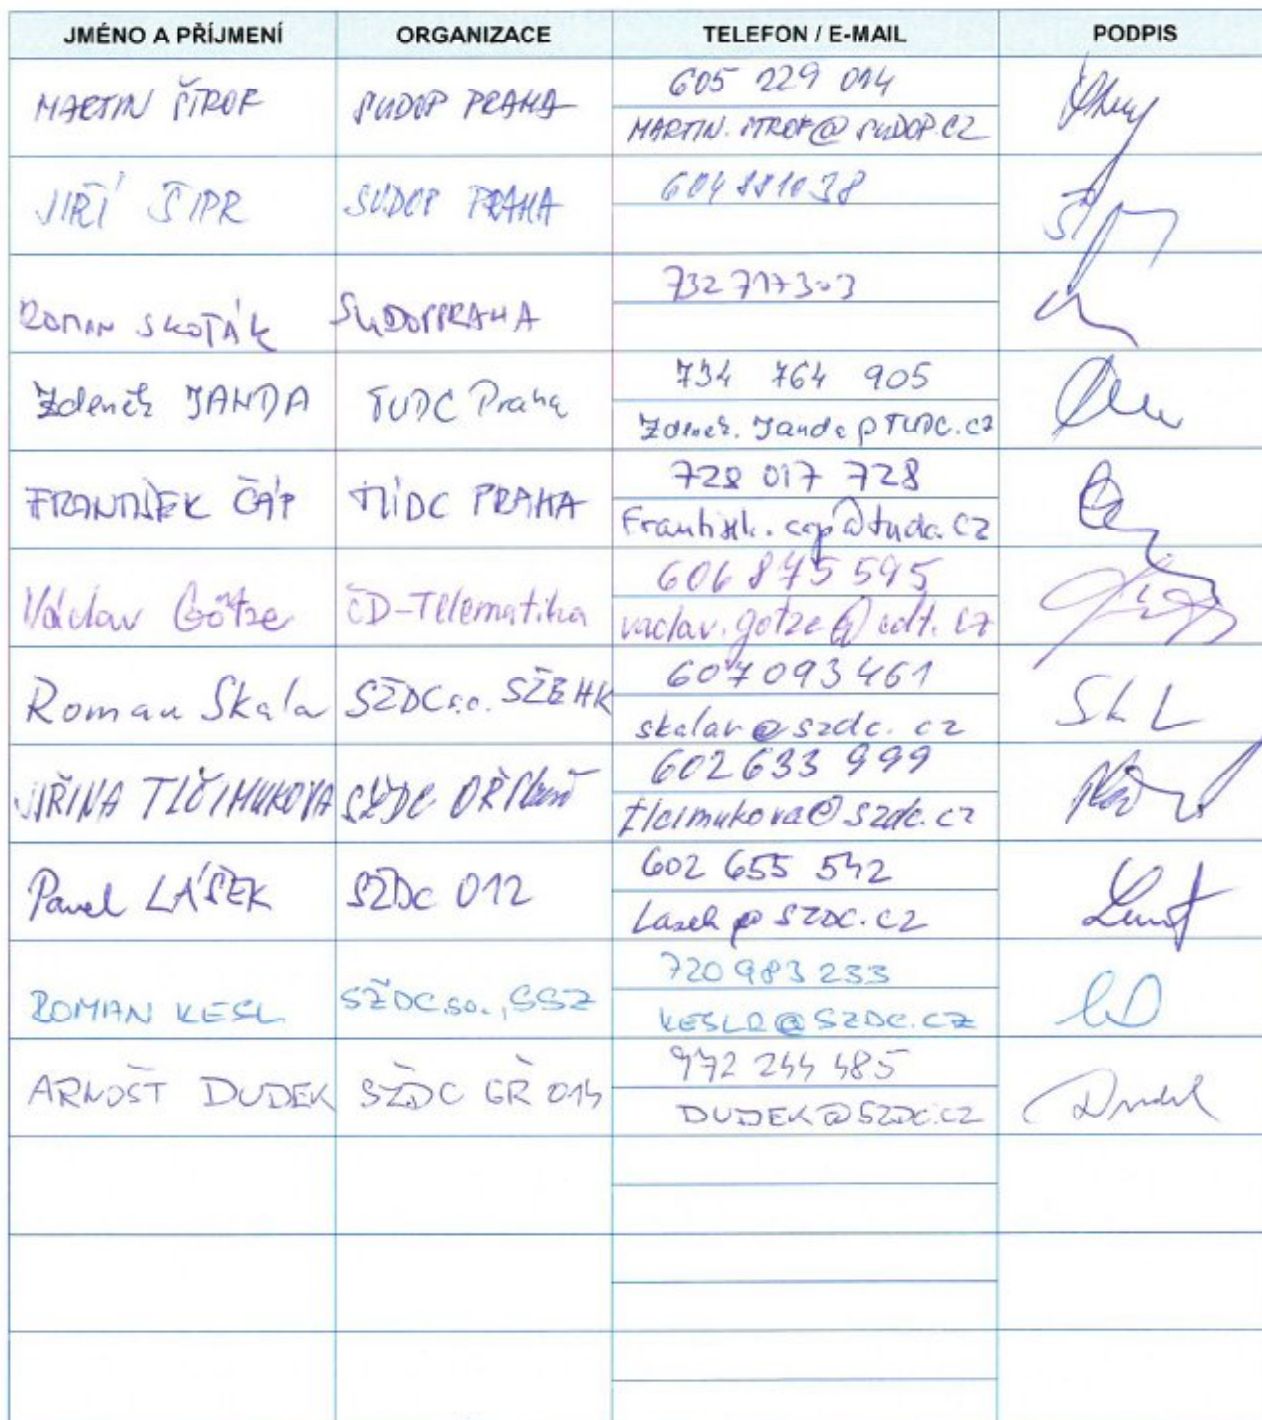 JMÉNO A PŘÍJMENÍ ORGANIZACE TELEFON / E-MAIL PODPIS
MARTIN ŠTROF SUDOP PRAHA 605 229 014
MARTIN.STROF@SUDOP.CZ
JIŘÍ ŠÍPR SUDOP PRAHA 604 881038
ROMAN SKOTÁK SUDOP PRAHA 732 717303
Zdeněk JANDA TUDC Praha 734 764 905
Zdenek.Janda@TUDC.cz
FRANTIŠEK ČÁP TÚDC PRAHA 728 017 728
Frantisek.cap@tudc.cz
Václav Götze ČD-Telematika 606 845 595
vaclav.gotze@cdt.cz
Roman Skala SŽDC s.o. SŽE HK 607 093 461
skalar@szdc.cz
JIŘINA TLČIMUKOVA SŽDC OŘ Plzeň 602 633 999
tlcimukova@szdc.cz
Pavel LÁSEK SŽDC 012 602 655 542
Lasek@SZDC.CZ
ROMAN KESL SŽDC so., SSZ 720 983 233
KESLR@SZDC.CZ
ARNOŠT DUDEK SŽDC GŘ 014 972 244 485
DUDEK@SZDC.CZ